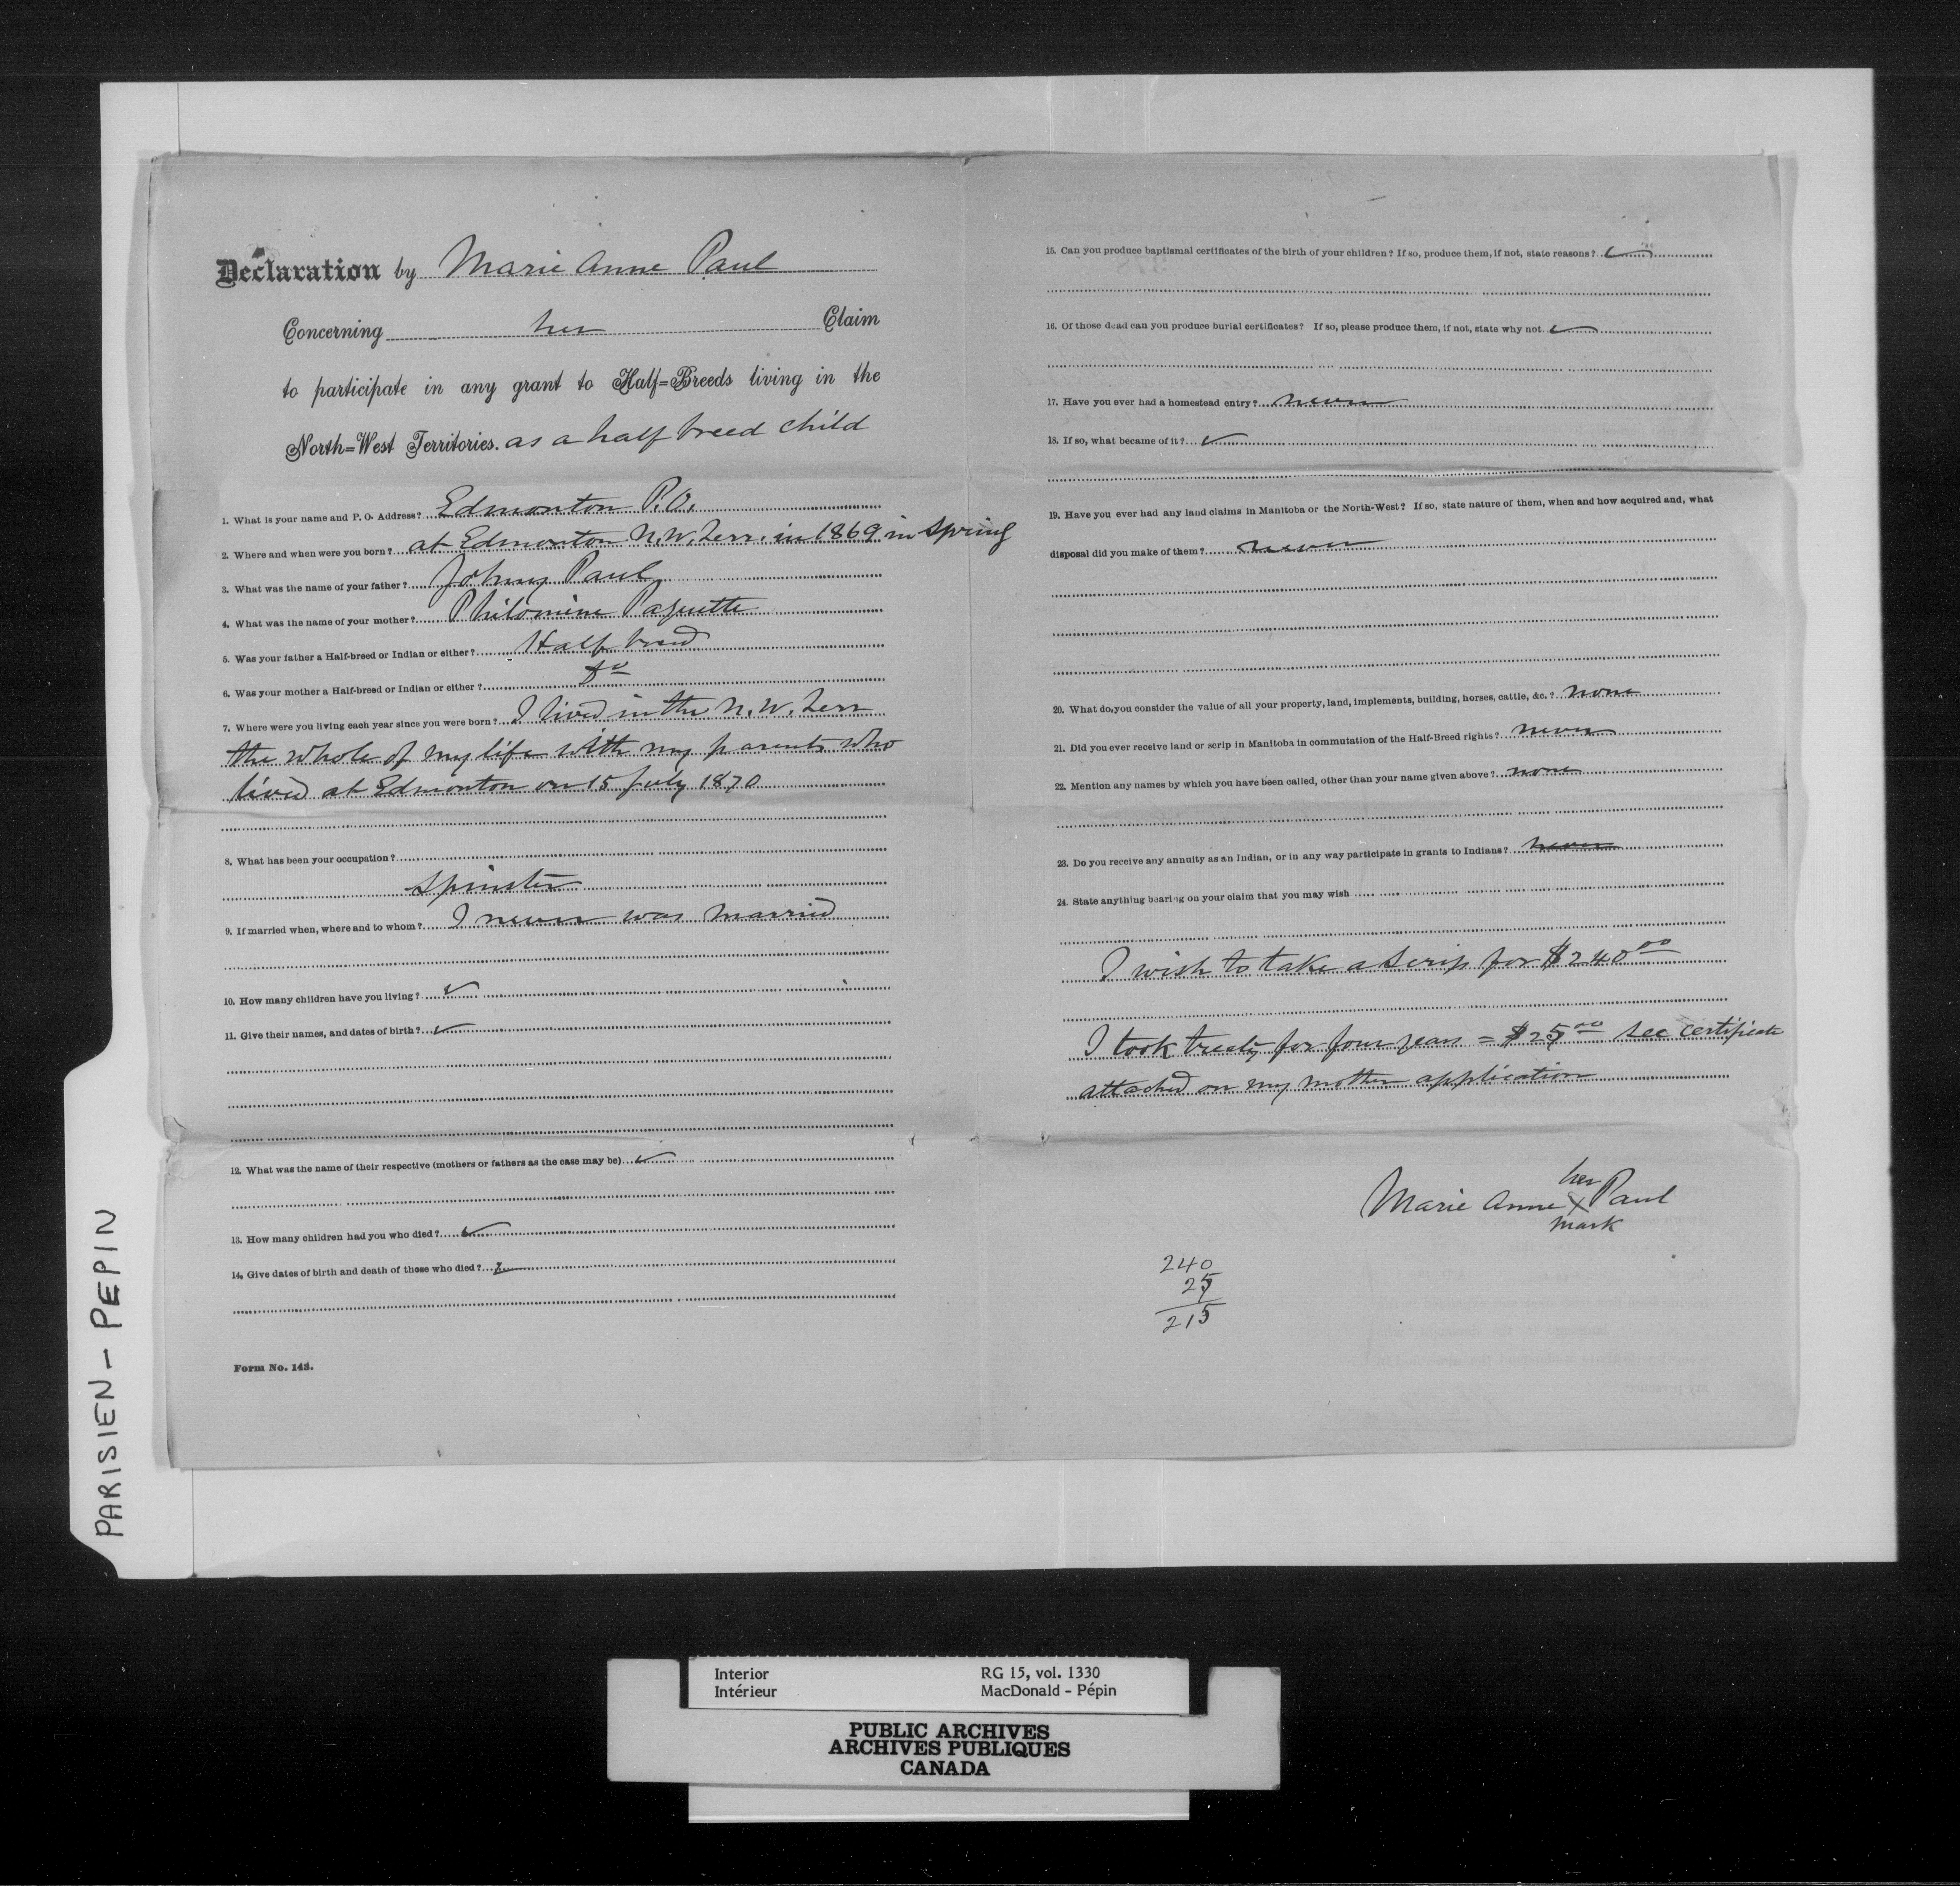 Declaration by Marie Anne Paul
Concerning her Claim
to participate in any grant to Half=Breeds living in the
North=West Territories. as a half breed child
1. What is your name and P. O. Address? Edmonton P.O.
2. Where and when were you born? at Edmonton N.W. Terr. in 1869 in spring
3. What was the name of your father? Johny Paul
4. What was the name of your mother? Philomène Paquette
5. Was your father a Half-breed or Indian or either? Half breed
6. Was your mother a Half-breed or Indian or either? do
7. Where were you living each year since you were born? I lived in the N.W. Terr
the whole of my life with my parents who
lived at Edmonton on 15 July 1870
8. What has been your occupation?
Spinster
9. If married when, where and to whom? I never was married
10. How many children have you living? ✓
11. Give their names, and dates of birth? ✓
12. What was the name of their respective (mothers or fathers as the case may be) ✓
13. How many children had you who died? ✓
14. Give dates of birth and death of those who died?
Form No. 143.
15. Can you produce baptismal certificates of the birth of your children? If so, produce them, if not, state reasons? ✓
16. Of those dead can you produce burial certificates? If so, please produce them, if not, state why not. ✓
17. Have you ever had a homestead entry? never
18. If so, what became of it? ✓
19. Have you ever had any land claims in Manitoba or the North-West? If so, state nature of them, when and how acquired and, what
disposal did you make of them? never
20. What do you consider the value of all your property, land, implements, building, horses, cattle, &c.? none
21. Did you ever receive land or scrip in Manitoba in commutation of the Half-Breed rights? never
22. Mention any names by which you have been called, other than your name given above? none
23. Do you receive any annuity as an Indian, or in any way participate in grants to Indians? never
24. State anything bearing on your claim that you may wish
I wish to take a scrip for $240.00
I took treaty for four years = $25.00 see certificate
attached on my mother application
her
Marie Anne X Paul
mark
240
25
215
PARISIEN - PEPIN
Interior RG 15, vol. 1330
Intérieur MacDonald - Pépin
PUBLIC ARCHIVES
ARCHIVES PUBLIQUES
CANADA